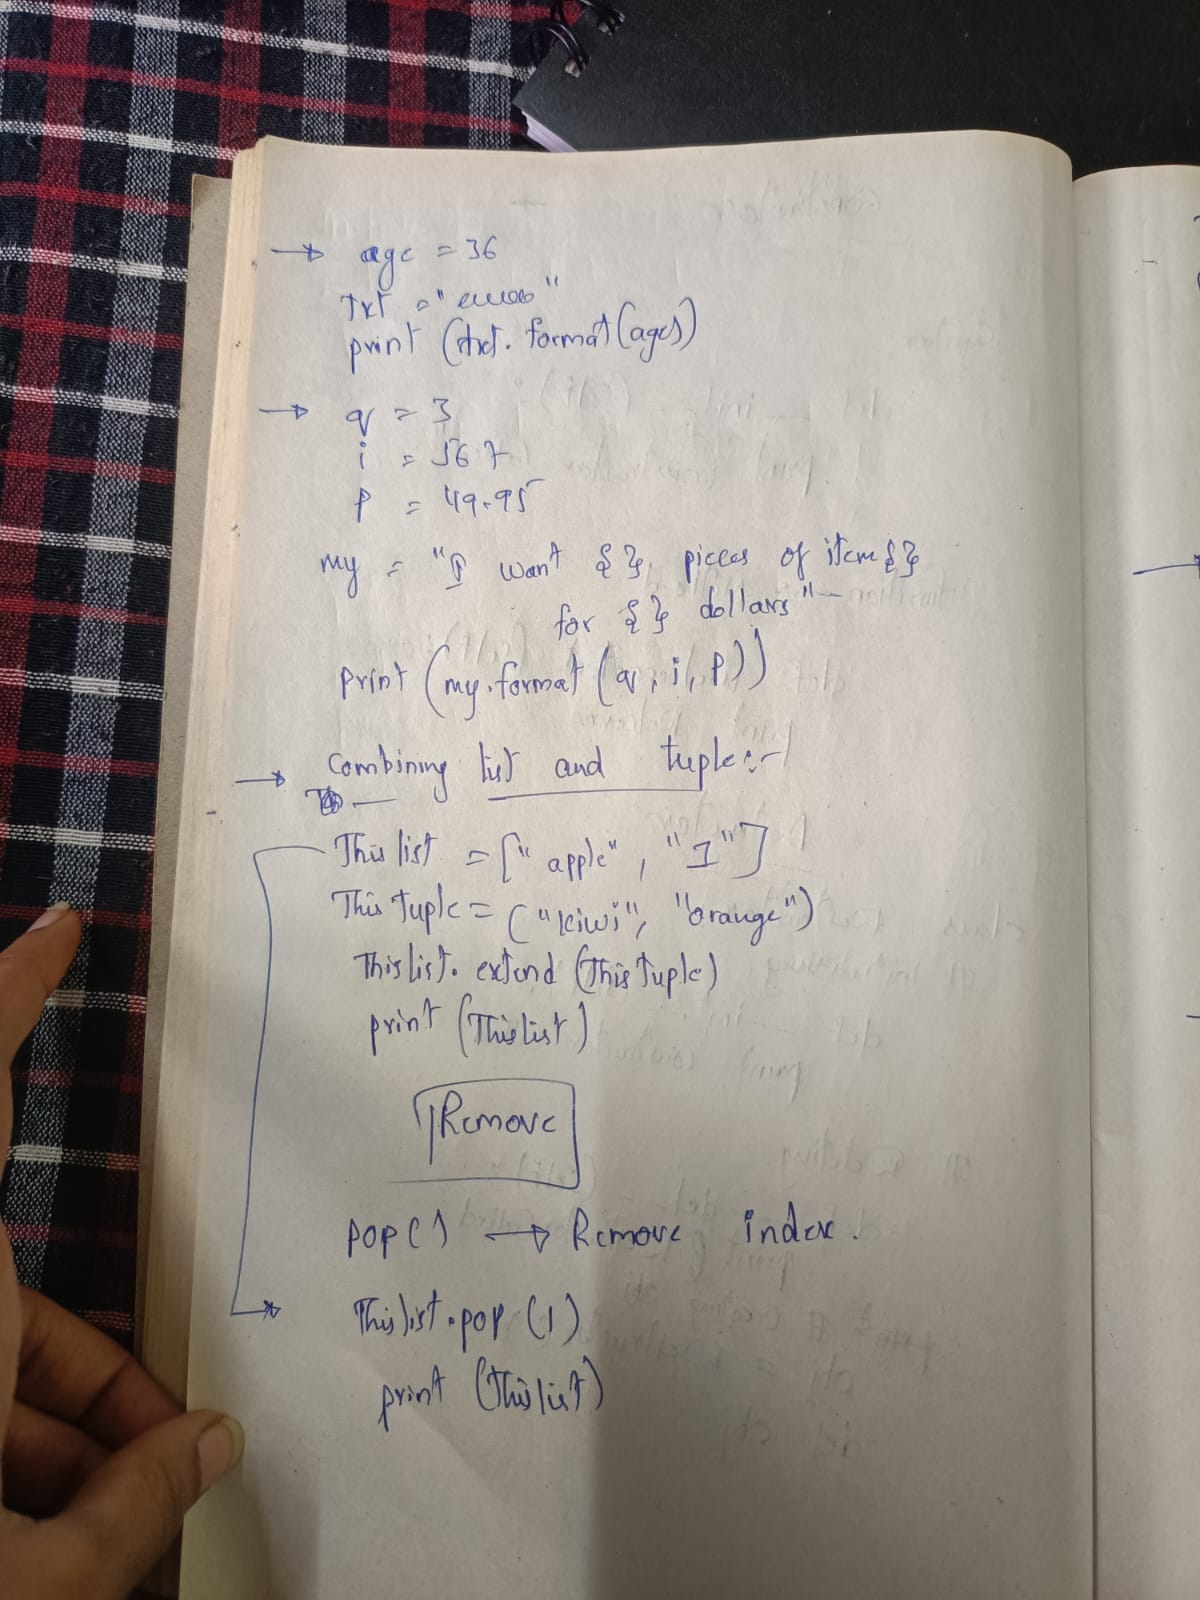 → age = 36
Txt = " "
print (txt. format(ages)
→ q = 3
i = 567
p = 49.95
my = "I want {} pieces of item {}
for {} dollars"
print (my.format (q, i, p))
→ Combining list and tuple :-
This list = ["apple", "1"]
This Tuple = ("kiwi", "orange")
This list. extend (This Tuple)
print (This list)
Remove
pop() → Remove index.
This list.pop (1)
print (This list)